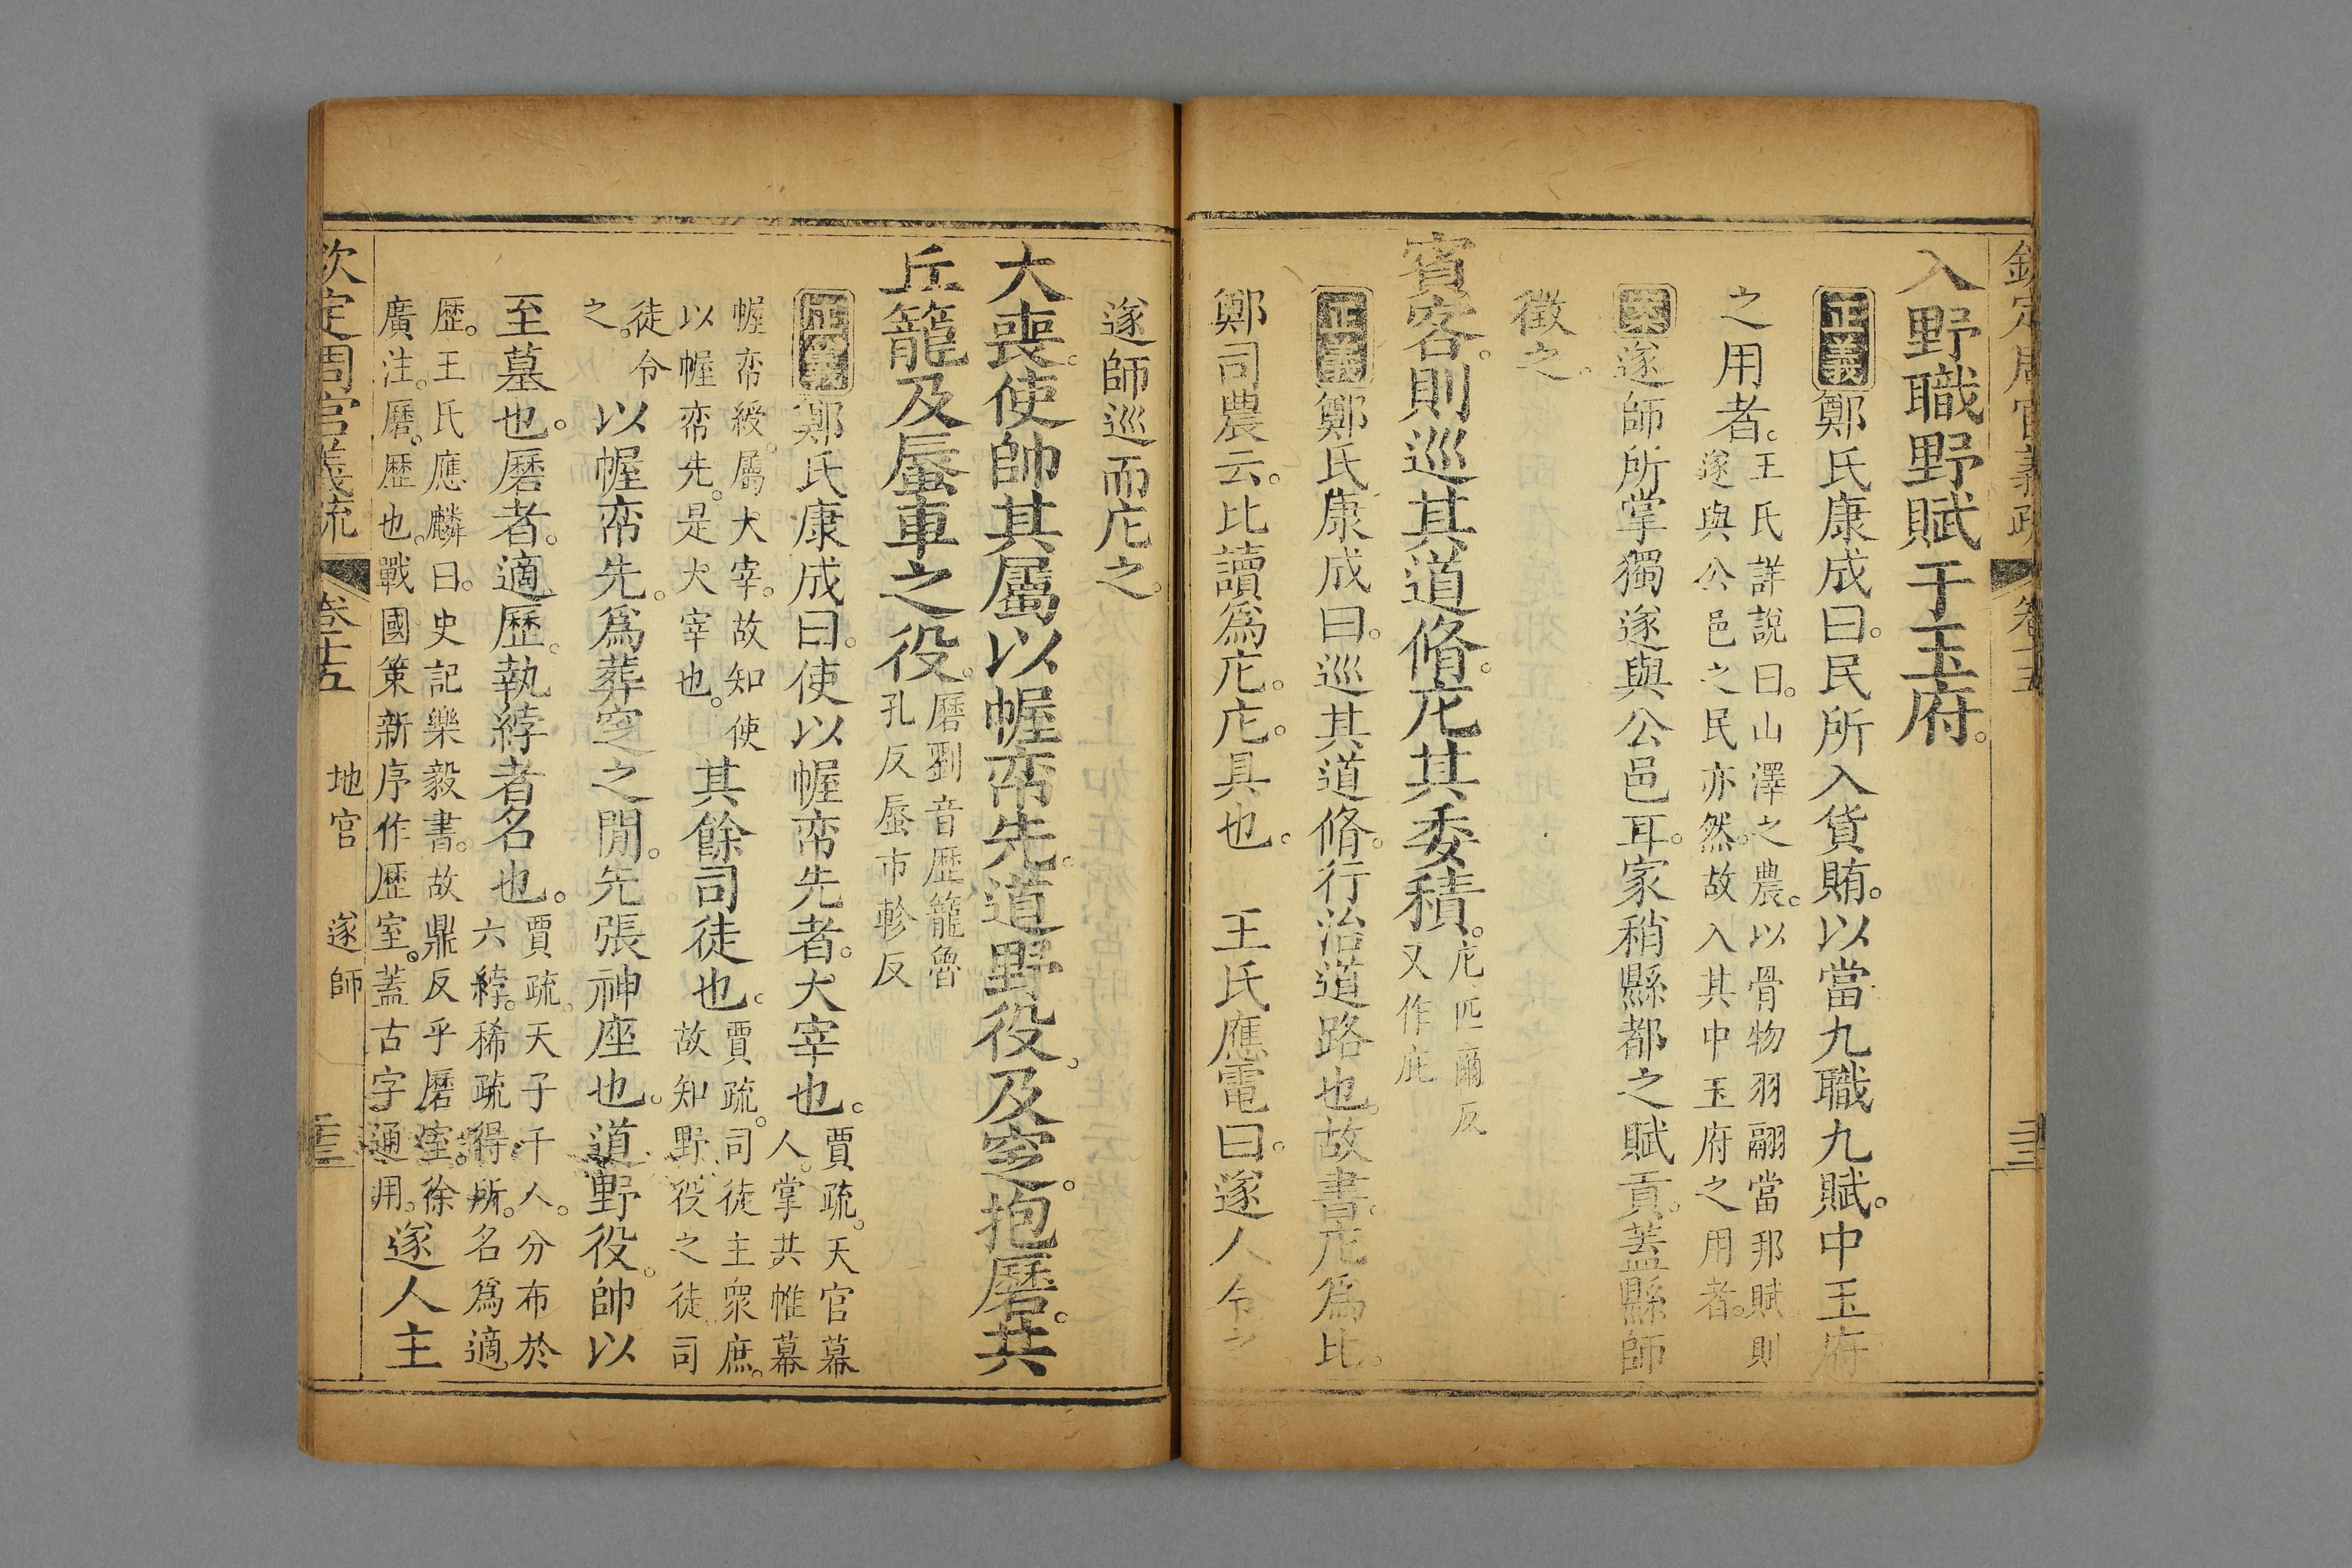 欽定周官義疏 卷十五
入野職野賦于玉府。
正義鄭氏康成曰。民所入貨賄。以當九職九賦。中玉府
之用者。王氏詳說曰。山澤之農。以骨物羽翮當邦賦則
遂與公邑之民亦然。故入其中玉府之用者。
案遂師所掌獨遂與公邑耳。家稍縣都之賦貢。蓋縣師
徵之。
賓客。則巡其道脩。庀其委積。庀匹爾反
又作庇
正義鄭氏康成曰。巡其道脩。行治道路也。故書。庀為比。
鄭司農云。比讀為庀。庀。具也。 王氏應電曰。遂人令之
遂師巡而庀之。
大喪。使帥其屬以幄帟先。道野役。及窆。抱磿。共
丘籠及蜃車之役。磿劉音歷籠魯
孔反蜃市軫反
正義鄭氏康成曰。使以幄帟先者。大宰也。賈疏。天官幕
人。掌共帷幕
幄帟綬。屬大宰。故知使
以幄帟先。是大宰也。其餘司徒也。賈疏。司徒主衆庶。
故知野役之徒司
徒令
之。以幄帟先。為葬窆之閒。先張神座也。道野役。帥以
至墓也。磿者。適歷。執綍者名也。賈疏。天子千人。分布於
六綍。稀疏得所。名為適
歷。王氏應麟曰。史記樂毅書。故鼎反乎磿室。徐
廣注。磿。歷也。戰國策新序作歷室。蓋古字通用。遂人主
欽定周官義疏 卷十五 地官 遂師